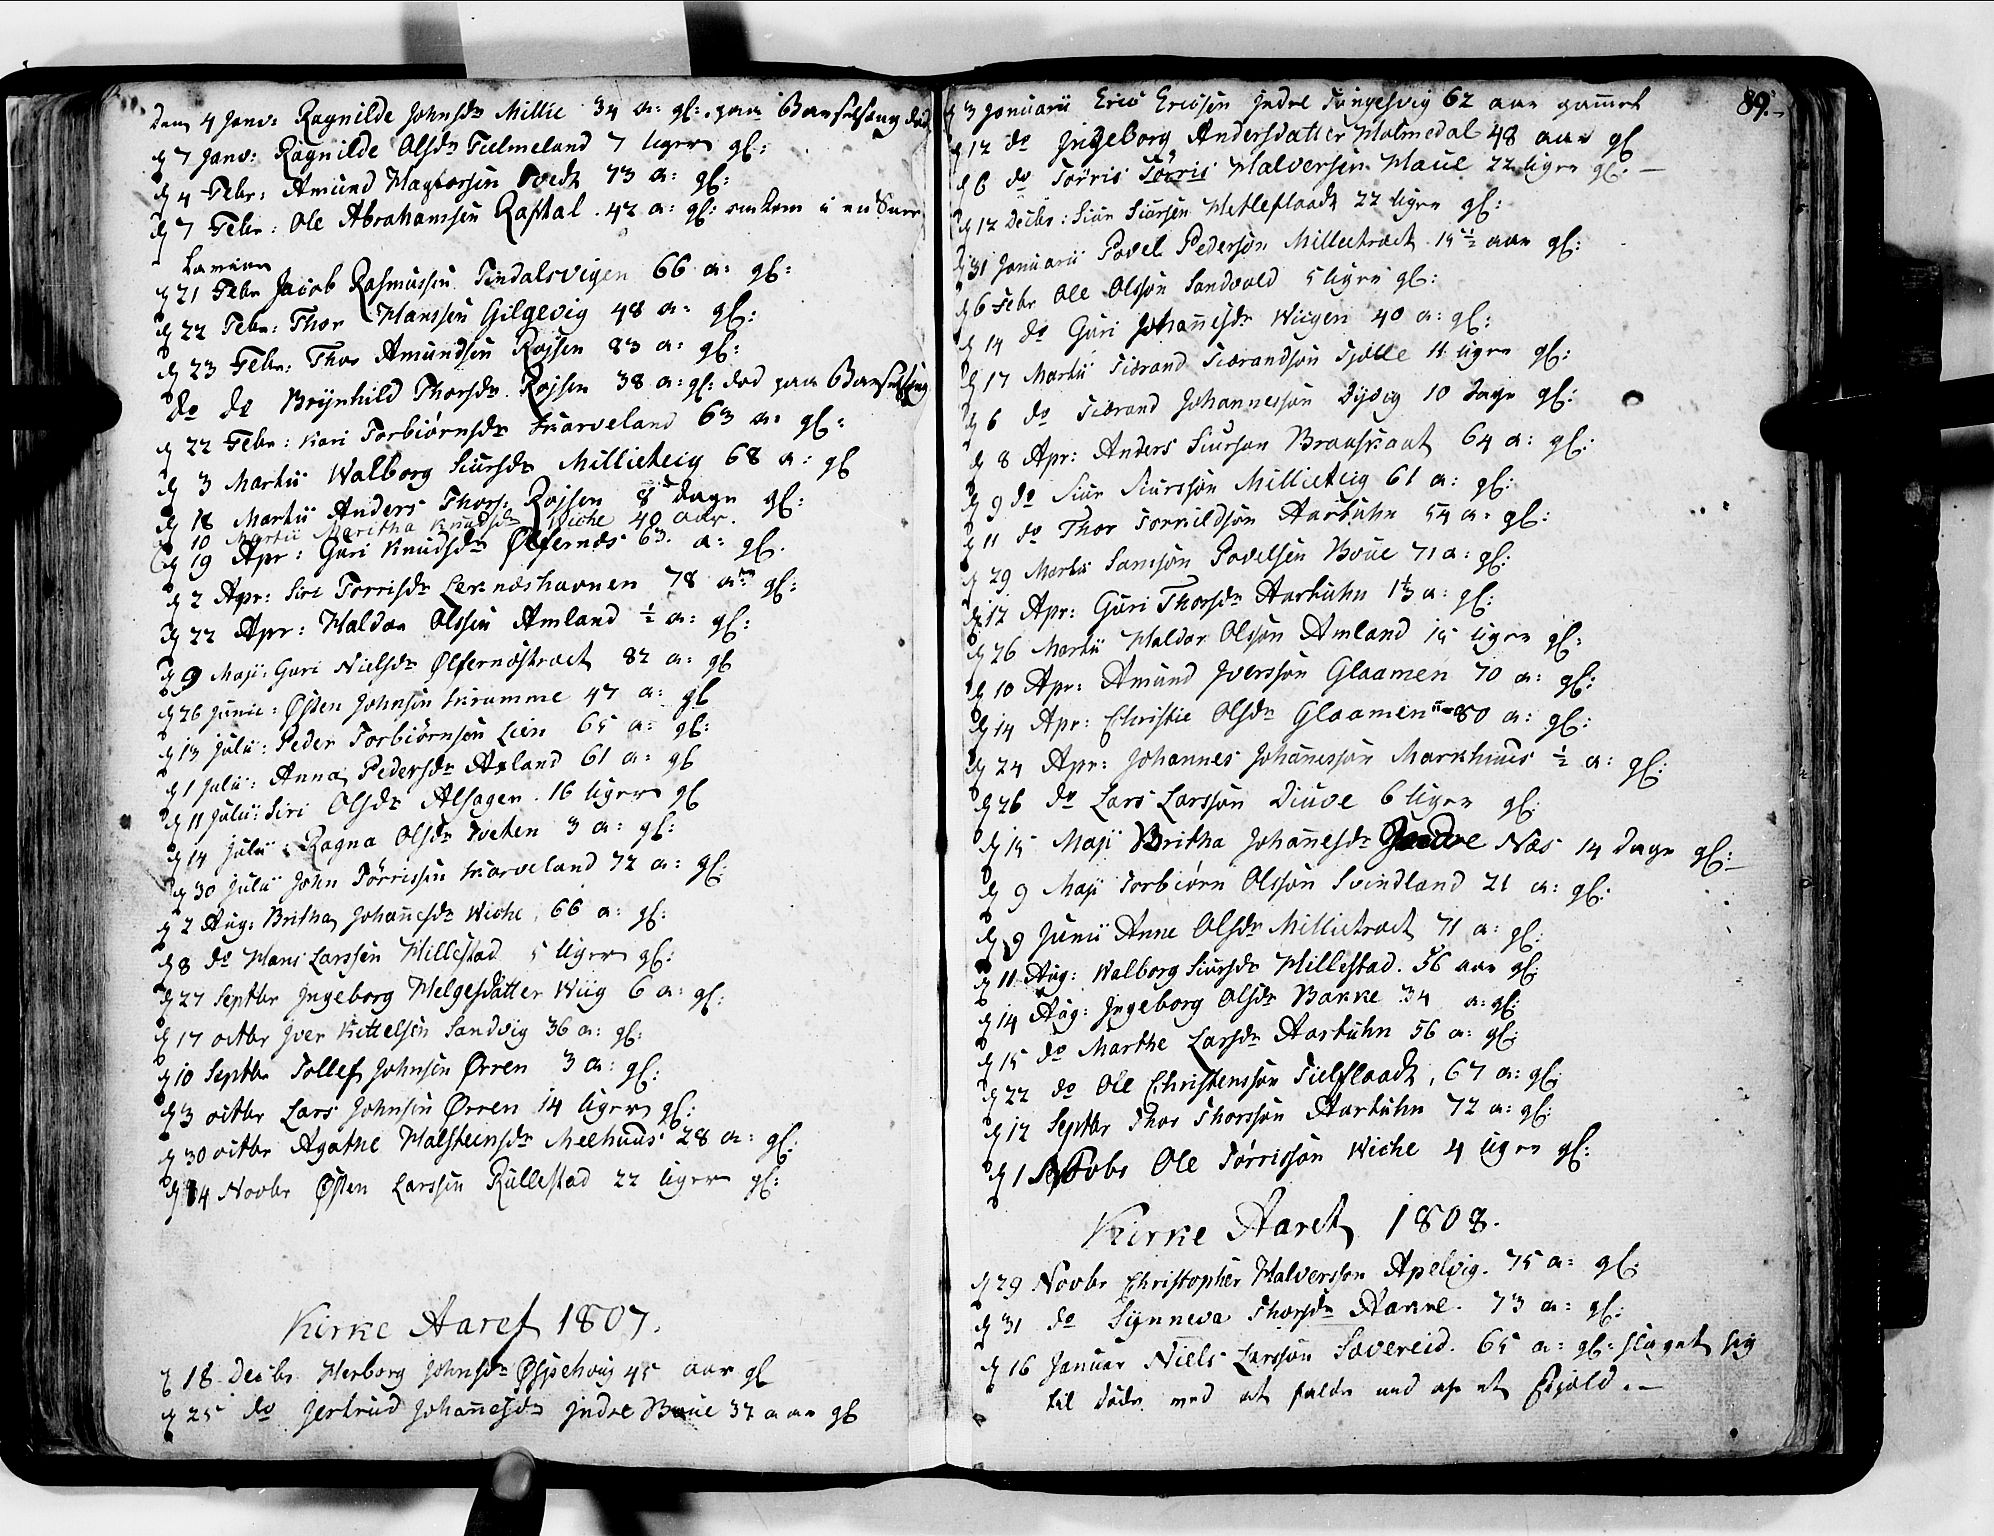 Den 4 Janv: Ragnilde Johnsdr Millie 34 a: gl: paa Barselseng død
d 7 Janv: Ragnilde Olsdr Fielmeland 7 uger gl:
d 4 Febr: Amund Magtorsen Tvedt 73 a: gl:
d 7 Febr: Ole Abrahamsen Raftal. 42 a: gl: omkom i en Snee
d 21 Febr Jacob Rasmussen Tindalsvigen 66 a: gl:
d 22 Febr: Thor Hanssen Gilgevig 48 a: gl:
d 23 Febr: Thor Amundsen Røjsen 83 a: gl:
do do Brynhild Thorsdr Røjsen 38 a: gl: død paa Barselseng
d 22 Febr: Kari Torbiørnsdr Skarveland 63 a: gl:
d 3 Martii Walborg Siursdr Millieteig 68 a: gl
d 18 Martii Anders Thors: Røjsen 8 Dage gl:
d 10 Martii Maritha Knudsdr Wiche 40 aar.
d 19 Apr: Guri Knudsdr Ølfernæs 63. a: gl.
d 2 Apr: Siri Torrisdr Leknæshavnen 78 a: gl:
d 22 Apr: Haldor Olssen Amland ½ a: gl:
d 9 Maji: Guri Nielsdr Ølfernæstræet 82 a: gl
d 26 Junii: Østen Johnsen Skramme 47 a: gl
d 13 Julii: Peder Torbiørnsen Lien 65 a: gl:
d 1 Julii: Anna Pedersdr Axland 61 a: gl
d 11 Julii: Siri Olsdr Alsagen. 16 uger gl
d 14 Julii: Ragna Olsdr Tveten 3 a: gl:
d 30 Julii John Törrissen Skarveland 72 a: gl:
d 2 Aug: Britha Johanesdr Wiche. 66 a: gl:
d 8 do Hans Larssen Millestad 5 uger gl:
d 27 Septbr Ingeborg Helgesdatter Wiig 6 a: gl:
d 17 octbr Iver Kittelsen Sandvig 36 a: gl:
d 10 Septbr Tollef Johnsen Ørren 3 a: gl:
d 3 octbr Lars Johnsen Ørren 14 uger gl:
d 30 octbr Agathe Halsteensdr Meehuus 28 a: gl:
d 14 Novbr Østen Larssen Rullestad 22 uger gl:
Kirke Aaret 1807.
d 18 Decbr Herborg Johnsdr Øspehoug 45 aar gl
d 25 do Jertrud Johanesdr Indre Boue 37 aar gl
89.
d 3 Januarii Eric Ericsen Indre Tungesvig 62 aar gamel
d 12 do Ingeborg Andersdatter Holmedal 48 aar gl
d 6 do Törris Törris Halversen Haue 22 uger gl: —
d 12 Decbr: Siur Siursen Metteflaadt 22 uger gl:
d 31 Januarii Povel Pedersøn Millietræet 15½ aar gl:
d 6 Febr Ole Olssøn Sandvold 5 uger gl:
d 14 do Guri Johanesdr Wiigen 40 a: gl:
d 17 Martii Siòrand Siòrandsøn Fjolle 11 uger gl:
d 6 do Siòrand Johannessøn Dysvig 10 Dage gl:
d 8 Apr: Anders Siursøn Braaskaat 64 a: gl:
d 9 do Siur Siurssøn Millieteig 61 a: gl:
d 11 do Thor Torkildsøn Aartuhn 54 a: gl:
d 29 Martii Samsøn Povelsen Boue 71 a: gl:
d 12 Apr: Guri Thorsdr Aartuhn 1⅓ a: gl:
d 26 Martii Haldor Olsøn Amland 15 uger gl:
d 10 Apr: Amund Iverssøn Glaamen 70 a: gl:
d 14 Apr: Christie Olsdr Glaamen 80 a: gl:
d 24 Apr: Johannes Johanessøn Markhuus ½ a: gl:
d 26 do Lars Larssøn Diuve 6 uger gl:
d 15 Maji Britha Johanesdr Indre Næs 14 Dage gl: —
d 9 Maji Torbiørn Olssøn Svindland 21 a: gl:
d 9 Junii Anne Olsdr Millietræet 71 a: gl:
d 11 Aug: Walborg Siursdr Millestad. 56 aar gl:
d 14 Aug: Ingeborg Olsdr Bakke 34 a: gl:
d 15 do Marthe Larsdr Aartuhn 56 a: gl:
d 22 do Ole Christenssøn Fielflaadt, 67 a: gl:
d 12 Septbr Thor Thorssøn Aartuhn 72 a: gl:
d 1 Ole Törrissøn Wiche 4 uger gl:
Kirke Aaret 1808.
d 29 Novbr Christopher Halverssøn Apelvig. 75 a: gl:
d 31 do Synneva Thorsdr Aakre. 73 a: gl:
d 16 Januar Niels Larssøn Sævereid. 65 a: gl: slaget sig
til døde ved at falde ned af et Fjeld. —